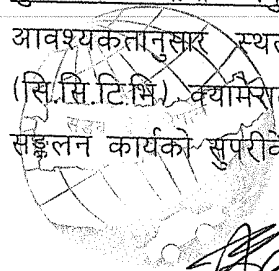 आवश्यकतानुसार स्थल
(सि.सि.टि.भि) क्यामेरा
सङ्कलन कार्यको सुपरीवे